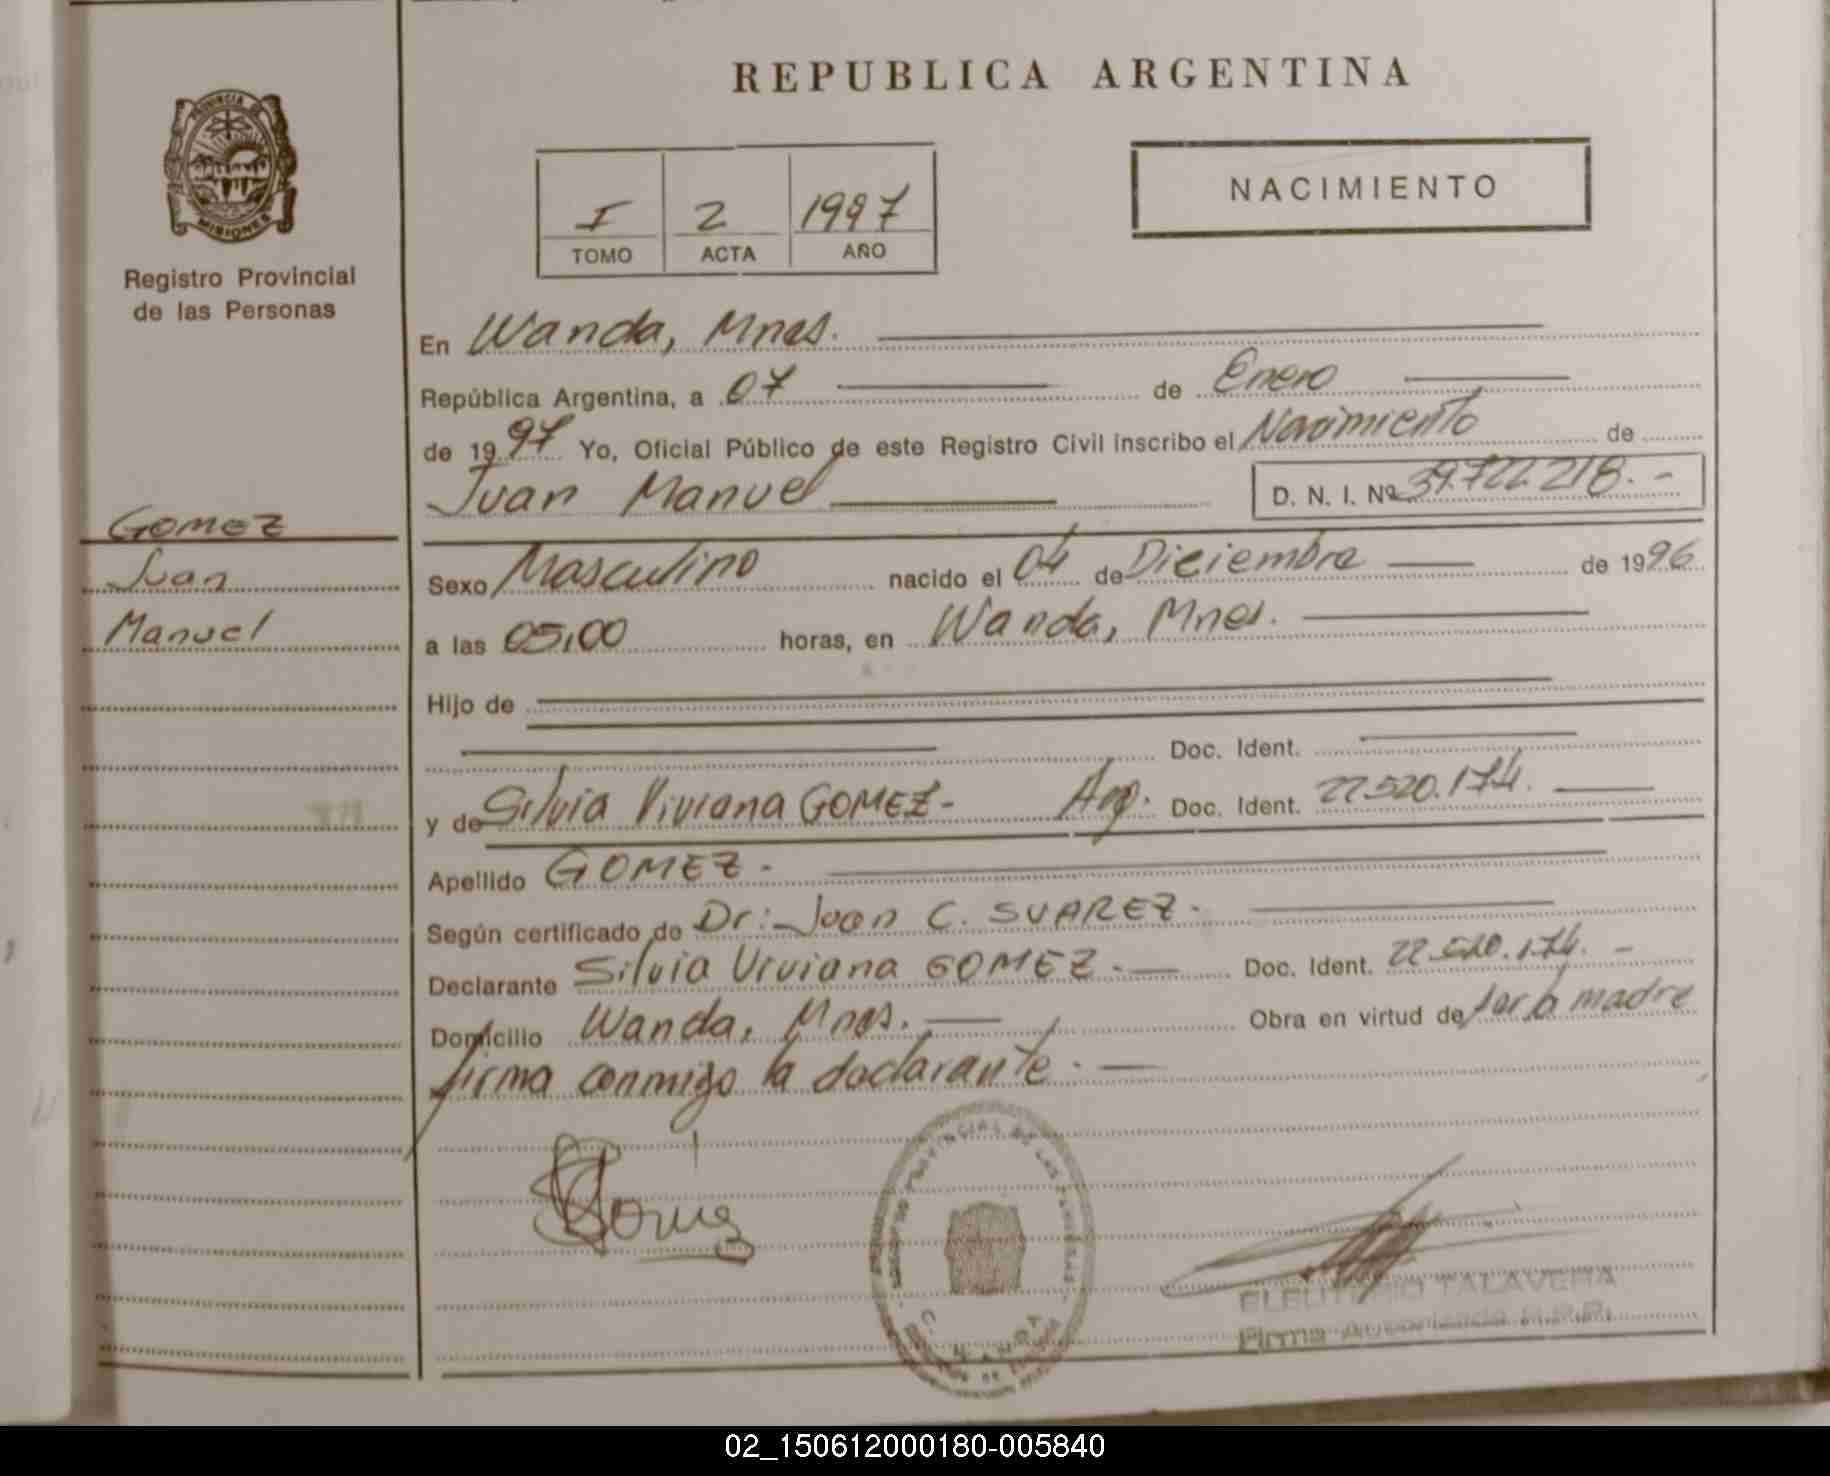 REPUBLICA ARGENTINA
PROVINCIA DE
MISIONES
Registro Provincial
de las Personas
I 2 1997
TOMO ACTA AÑO
NACIMIENTO
En Wanda, Mnes.
República Argentina, a 07 de Enero
de 1997 Yo, Oficial Público de este Registro Civil inscribo el Nacimiento de
Juan Manuel D. N. I. Nº 39.722.218.-
Gomez
Juan
Manuel
Sexo Masculino nacido el 04 de Diciembre de 1996
a las 05,00 horas, en Wanda, Mnes.
Hijo de
Doc. Ident.
y de Silvia Viviana GOMEZ- Arg. Doc. Ident. 22.520.174.
Apellido GOMEZ-
Según certificado de Dr: Juan C. SUAREZ-
Declarante Silvia Viviana GOMEZ.- Doc. Ident. 22.520.174.-
Domicilio Wanda, Mnes. Obra en virtud de ser la madre
firma conmigo la declarante.
ELEUTERIO TALAVERA
Firma Autorizada R.P.P.
02_150612000180-005840